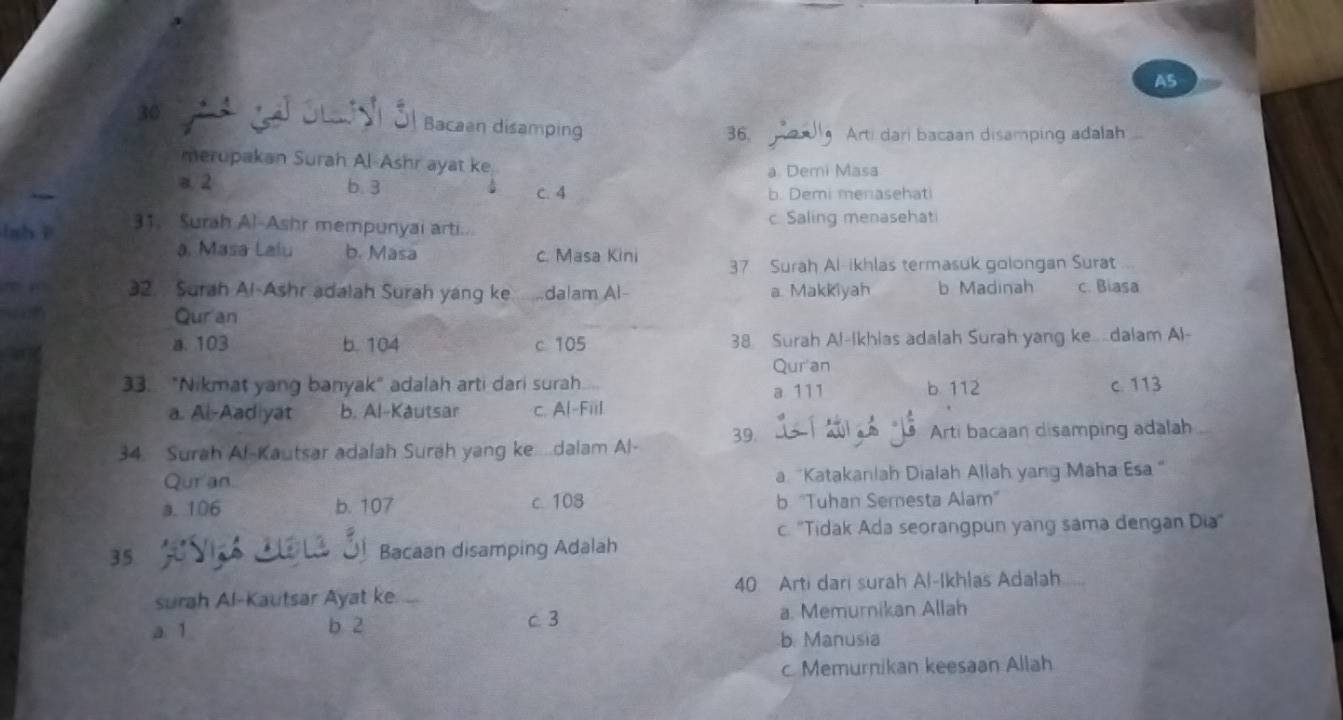 A5
30 إِنَّ الْاِنْسَانَ لَفِيْ خُسْرٍ Bacaan disamping
merupakan Surah Al-Ashr ayat ke
a. 2 b. 3 c. 4
31. Surah Al-Ashr mempunyai arti...
a. Masa Lalu b. Masa c. Masa Kini
32. Surah Al-Ashr adalah Surah yang ke ....dalam Al-
Qur'an
a. 103 b. 104 c. 105
33. "Nikmat yang banyak" adalah arti dari surah....
a. Al-Aadiyat b. Al-Kautsar c. Al-Fiil
34. Surah Al-Kautsar adalah Surah yang ke....dalam Al-
Qur'an
a. 106 b. 107 c. 108
35 إِنَّ شَانِئَكَ هُوَالْاَبْتَرُ Bacaan disamping Adalah
surah Al-Kautsar Ayat ke ....
a. 1 b. 2 c. 3
36. وَالْعَصْرِ Arti dari bacaan disamping adalah ...
a. Demi Masa
b. Demi menasehati
c. Saling menasehati
37 Surah Al-ikhlas termasuk golongan Surat ...
a. Makkiyah b. Madinah c. Biasa
38. Surah Al-Ikhlas adalah Surah yang ke....dalam Al-
Qur'an
a. 111 b. 112 c. 113
39. قُلْ هُوَ اللّٰهُ اَحَدٌ Arti bacaan disamping adalah ...
a. "Katakanlah Dialah Allah yang Maha Esa "
b. "Tuhan Semesta Alam"
c. "Tidak Ada seorangpun yang sama dengan Dia"
40. Arti dari surah Al-Ikhlas Adalah.....
a. Memurnikan Allah
b. Manusia
c. Memurnikan keesaan Allah